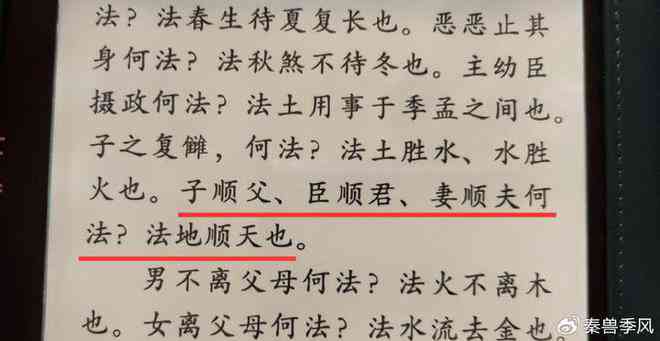 法？法春生待夏复长也。恶恶止其
身何法？法秋煞不待冬也。主幼臣
摄政何法？法土用事于季孟之间也。
子之复雠，何法？法土胜水、水胜
火也。子顺父、臣顺君、妻顺夫何
法？法地顺天也。
男不离父母何法？法火不离木
也。女离父母何法？法水流去金也。
秦兽季风